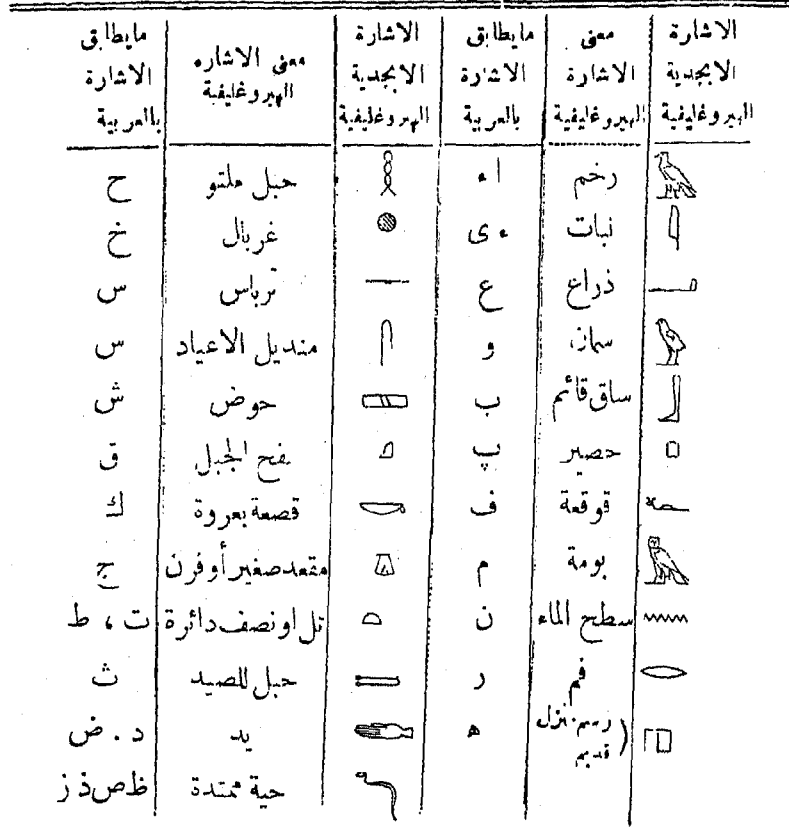 الاشارة الابجدية الهيروغليفية | معنى الاشارة الهيروغليفية | مايطابق الاشارة بالعربية | الاشارة الابجدية الهيروغليفية | معنى الاشاره الهيروغليفية | مايطابق الاشارة بالعربية
رخم | ا ء | حبل ملتو | ح
نبات | ء ى | غربال | خ
ذراع | ع | ترباس | س
سمان | و | منديل الاعياد | س
ساق قائم | ب | حوض | ش
حصير | پ | سفح الجبل | ق
قوقعة | ف | قصعة بعروة | ك
بومة | م | مقعد صغير أو فرن | ج
سطح الماء | ن | تل او نصف دائرة | ت ، ط
فم | ر | حبل للصيد | ث
رسم منزل قديم | ه | يد | د . ض
حية ممتدة | ظ ص ذ ز